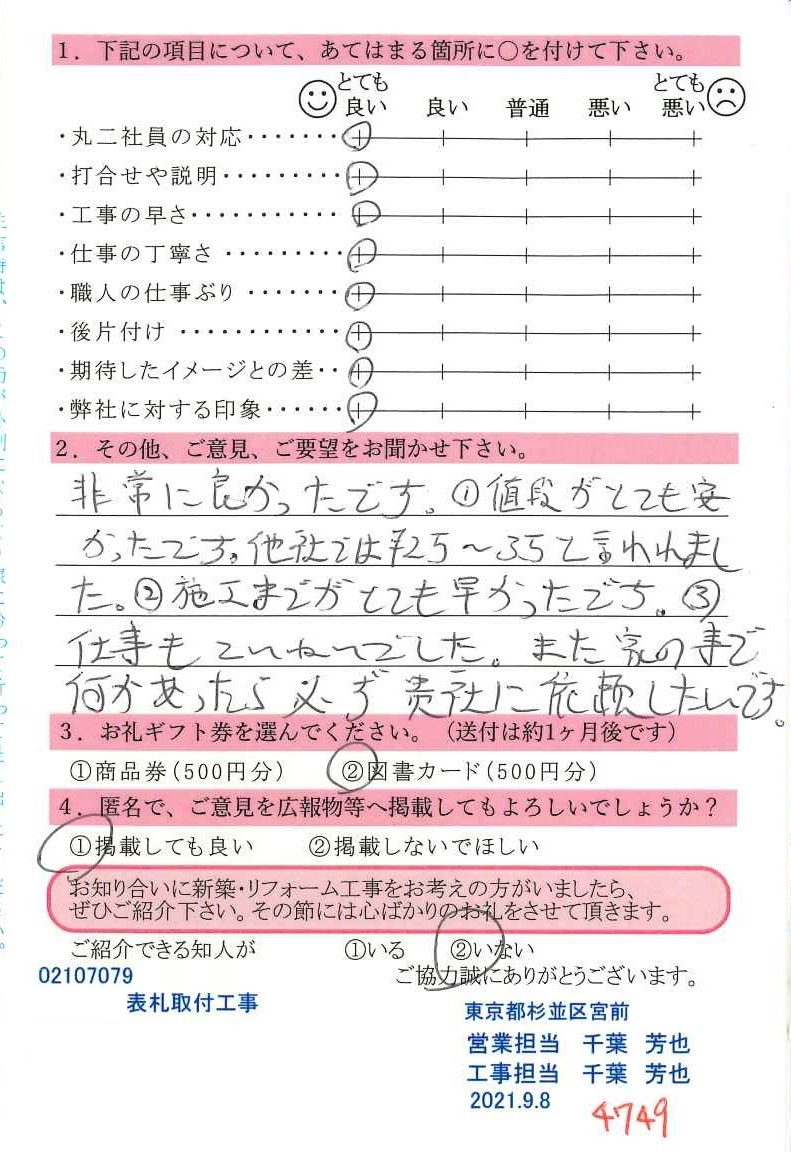 1．下記の項目について、あてはまる箇所に○を付けて下さい。
とても良い 良い 普通 悪い とても悪い
・丸二社員の対応・・・・・・・
・打合せや説明・・・・・・・・・
・工事の早さ・・・・・・・・・・・
・仕事の丁寧さ・・・・・・・・・
・職人の仕事ぶり・・・・・・・
・後片付け・・・・・・・・・・・・
・期待したイメージとの差・・
・弊社に対する印象・・・・・・
2．その他、ご意見、ご要望をお聞かせ下さい。
非常に良かったです。①値段がとても安
かったです。他社では¥25～35と言われまし
た。②施工までがとても早かったです。③
仕事もていねいでした。また家の事で
何かあったら必ず貴社に依頼したいです。
3．お礼ギフト券を選んでください。（送付は約1ヶ月後です）
①商品券（500円分） ②図書カード（500円分）
4．匿名で、ご意見を広報物等へ掲載してもよろしいでしょうか？
①掲載しても良い ②掲載しないでほしい
お知り合いに新築・リフォーム工事をお考えの方がいましたら、
ぜひご紹介下さい。その節には心ばかりのお礼をさせて頂きます。
ご紹介できる知人が ①いる ②いない
ご協力誠にありがとうございます。
02107079
表札取付工事
東京都杉並区宮前
営業担当 千葉 芳也
工事担当 千葉 芳也
2021.9.8
4749